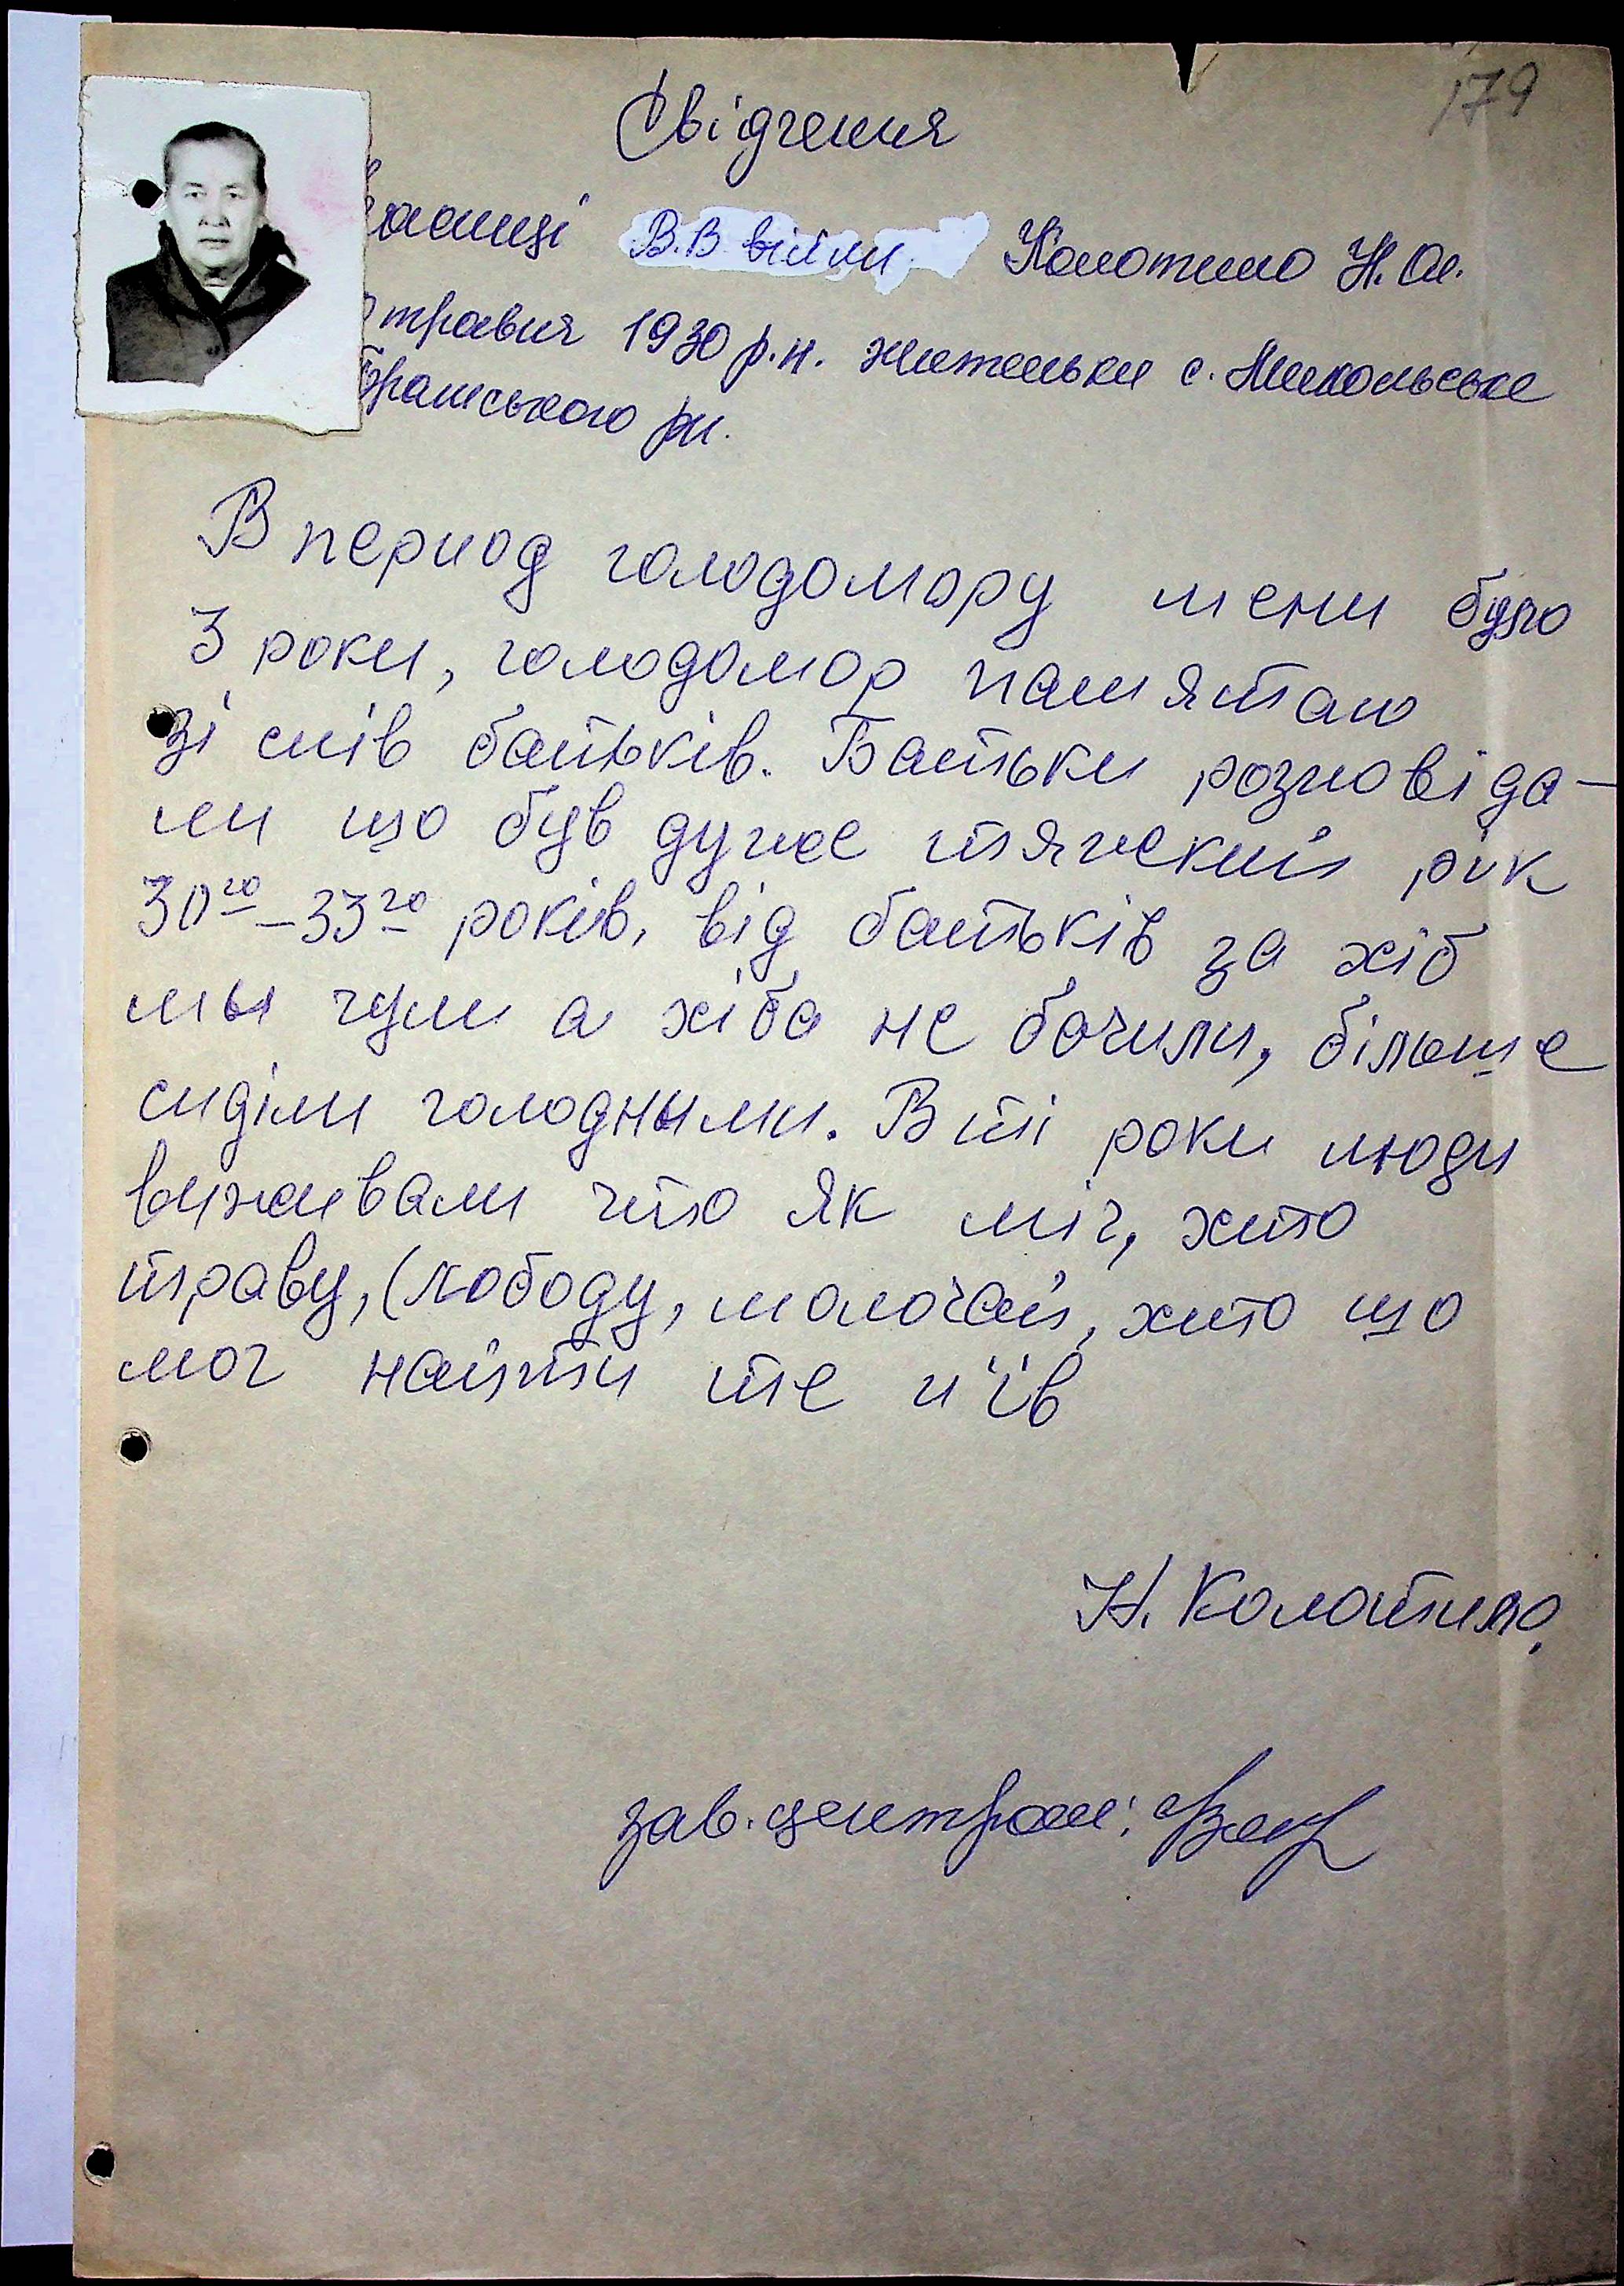 179
Свідчення
В.В війни. Колотило Н.Ол.
травня 1930 р.н. жительки с. Микольське
братського рн.
В период голодомору мени було
3 роки, голодомор памятаю
зі слів батьків. Батьки розповіда-
ли що був дуже тяжекий рик
30го-33го років, від батьків за хіб
мы чули а хіба не бачили, більше
сиділи голодными. В ті роки люди
виживали хто як міг, хито
траву, (лободу, молочай, хито що
мог найти те и їв
Н. Колотило.
зав. центром: